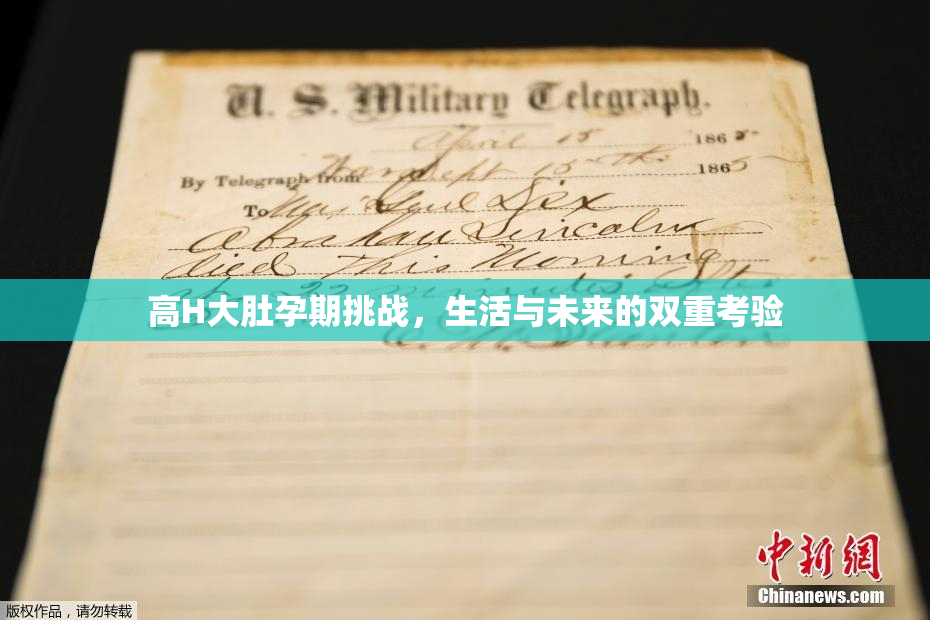 U. S. Military Telegraph.
April 15 1865
By Telegraph from War Dept 15th 1865
To Maj Genl Dix
Abraham Lincoln
died This Morning
at 22 minutes after
高H大肚孕期挑战，生活与未来的双重考验
中新网
Chinanews.com
版权作品，请勿转载